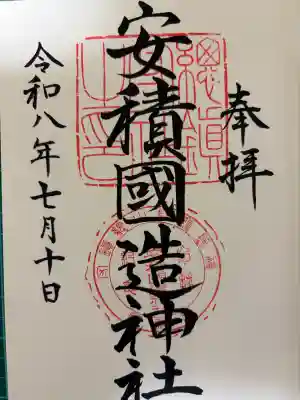 奉拝
安積國造神社
令和八年七月十日